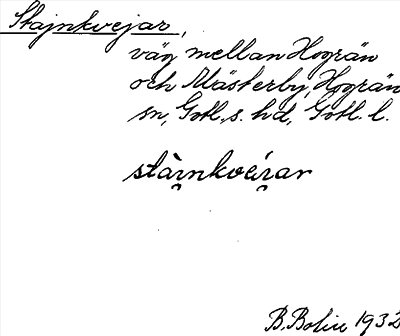 Stajnkvejar,
väg mellan Hogrän
och Mästerby, Hogrän
sn, Gotl. s. hd, Gotl. l.
stài̯nkvei̯ar
B. Bolin 1932